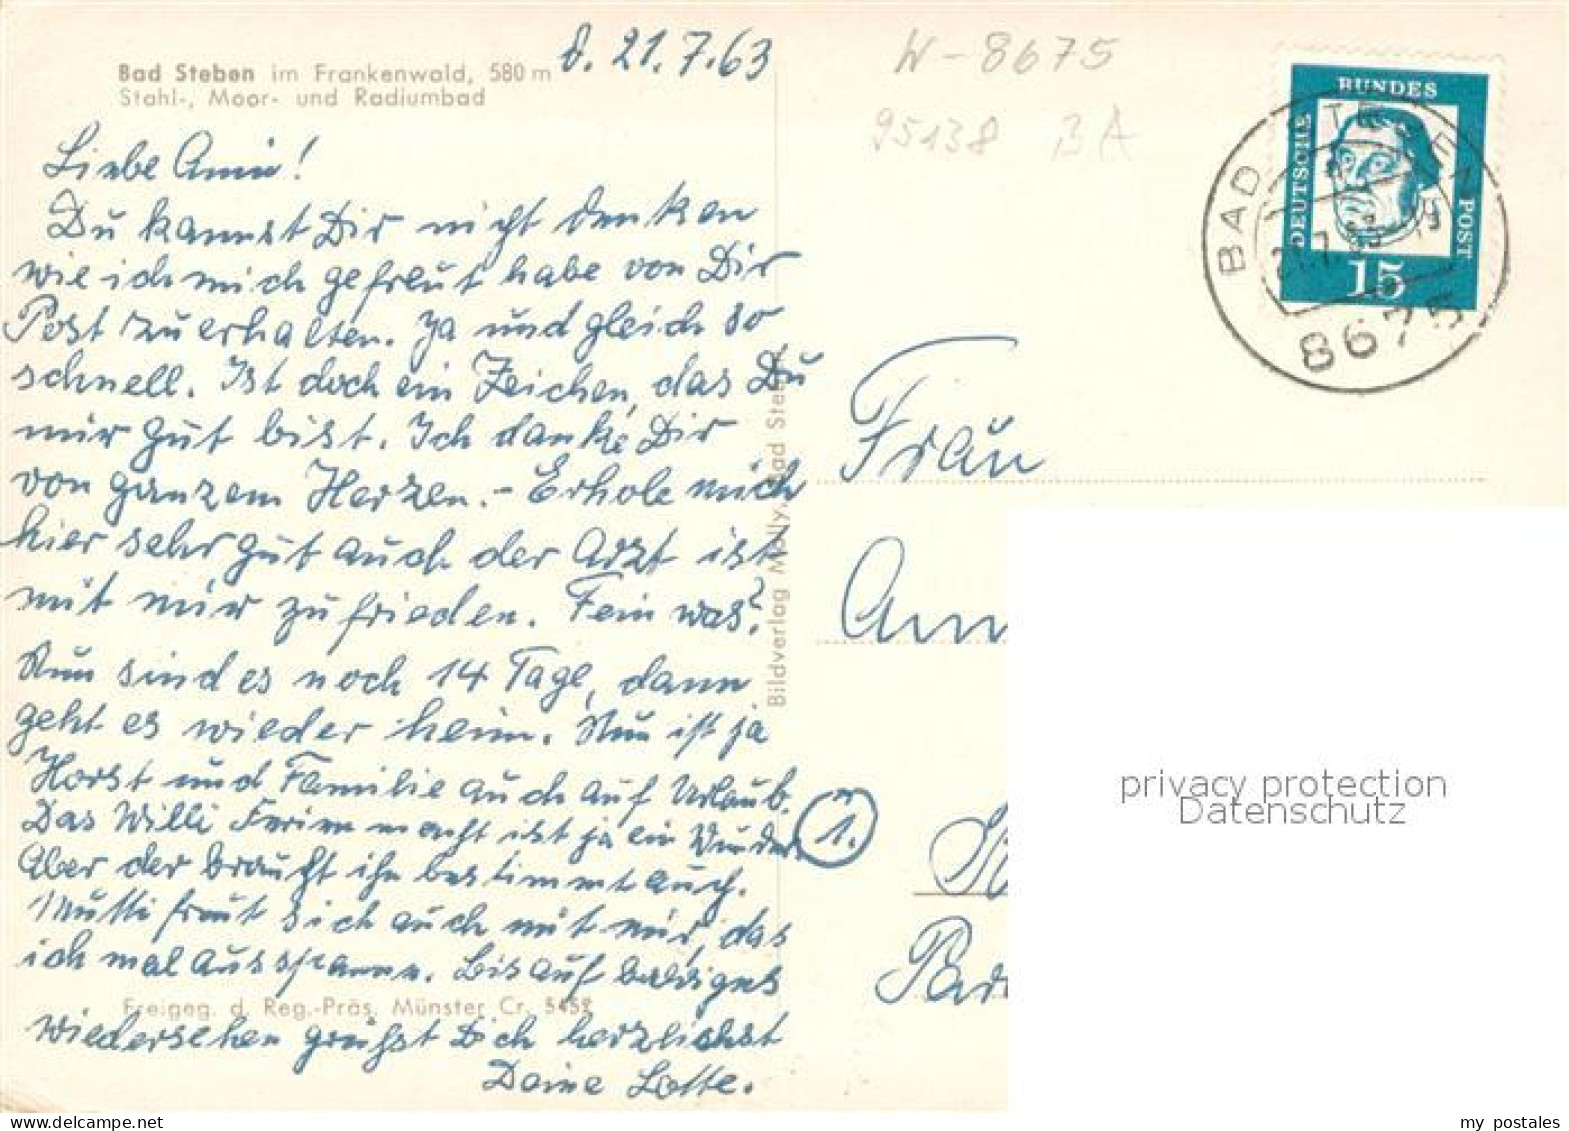 Bad Steben im Frankenwald, 580 m
Stahl-, Moor- und Radiumbad
d. 21.7.63
Liebe Anni!
Du kannst Dir nicht denken
wie ich mich gefreut habe von Dir
Post zu erhalten. Ja und gleich so
schnell. Ist doch ein Zeichen, das Du
mir gut bist. Ich danke Dir
von ganzem Herzen. - Erhole mich
hier sehr gut auch der Arzt ist
mit mir zufrieden. Fein was?
Nun sind es noch 14 Tage, dann
geht es wieder heim. Nun ist ja
Horst und Familie auch auf Urlaub.
Das Willi Ferien macht ist ja ein Wunder
Aber der braucht ihn bestimmt auch.
Mutti freut sich auch mit mir, das
ich mal ausspanne. Bis auf baldiges
Freigeg. d. Reg.-Präs. Münster Cr. 5458
wiedersehen grüßt Dich herzlichst
Deine Lotte.
Bildverlag Molly, Bad Steben
W-8675
95138 BA
DEUTSCHE BUNDES POST
15
BAD STEBEN
21.7.63-19
8675
Frau
Ann
1.
privacy protection
Datenschutz
my postales